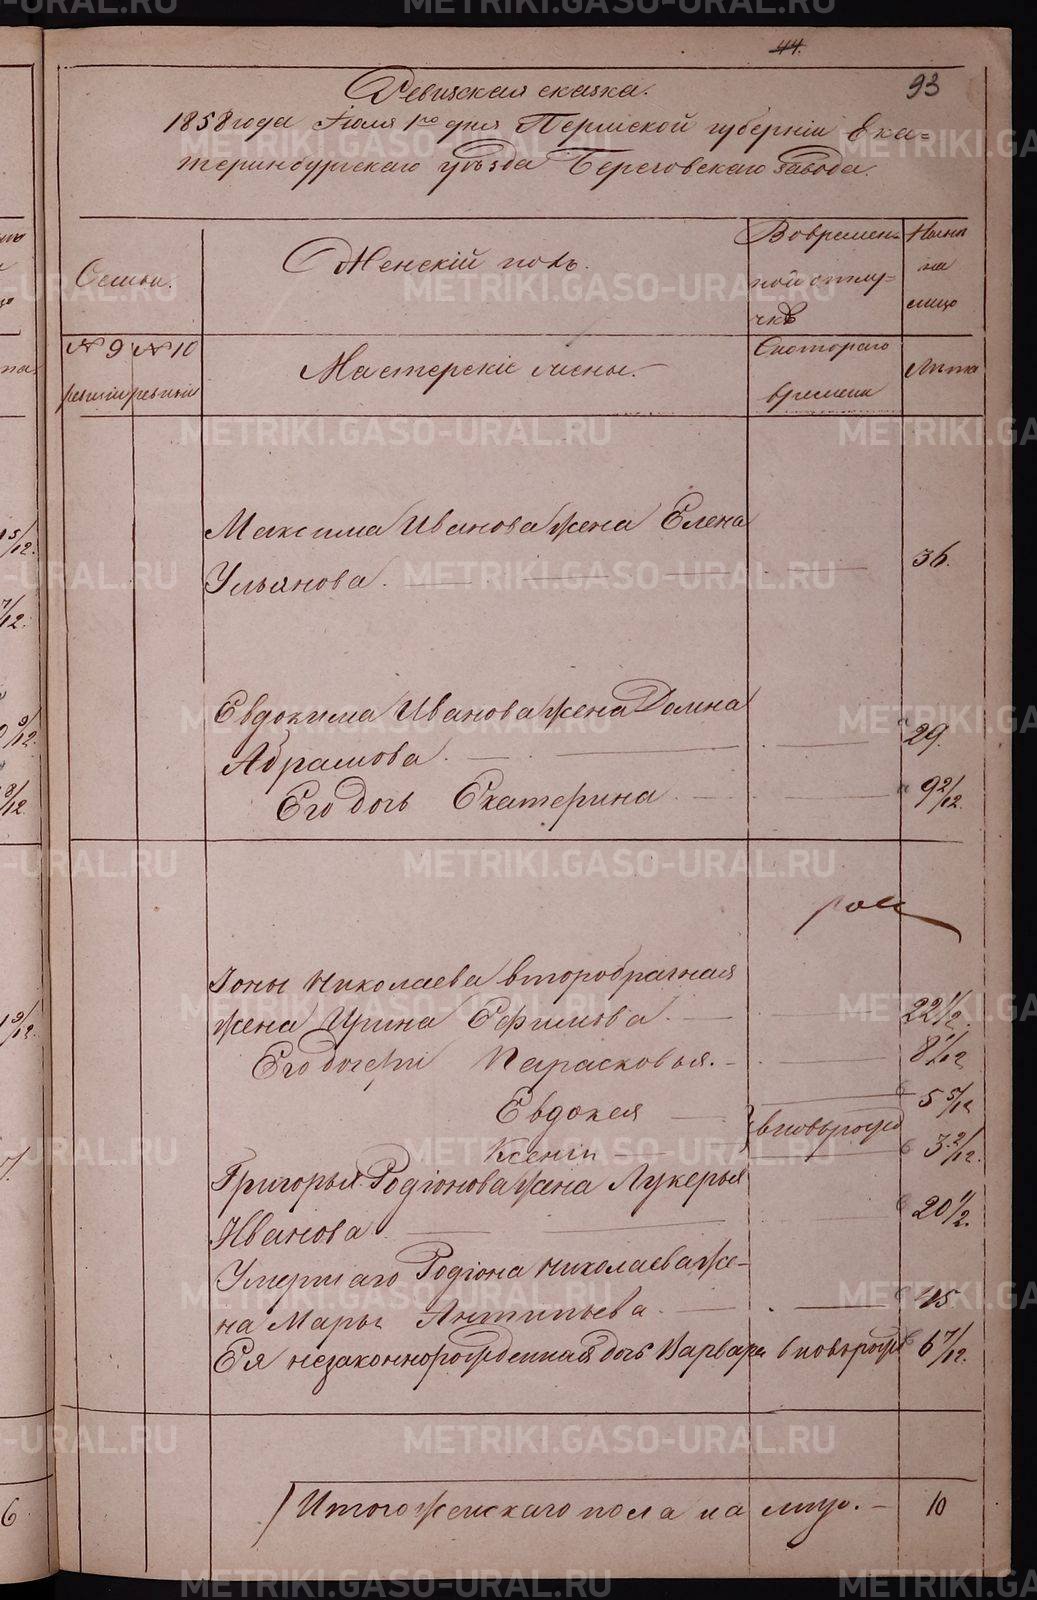 44.
93
Ревизская сказка.
1858 года Июля 1го дня Пермской губернiи Ека=
теринбургскаго уѣзда Березовскаго завода.
Семьи.
Женскiй полъ.
Во времен-
ной отлу-
чкѣ
Ныне
на
лицо
№ 9
ревизiи
№ 10
ревизiи
Мастерскiе жены.
Скотораго
времени
Лѣта
Максима Иванова жена Елена
Ульянова. 36.
Евдокима Иванова жена Домна
Абрамова. 29.
Его дочь Екатерина 9 2/12.
Iоны Николаева второбрачная
жена Ирина Ефимова. 22 1/2.
Его дочери Парасковья. 8 1/12
Евдокея 5 5/12
Ксенiи 3 2/12.
вновьрожд
Григорья Родiонова жена Лукерья
Иванова 20 1/2.
Умершаго Родiона Николаева же-
на Марья Антипьева 45
Ея незаконнорожденная дочь Варвара вновьрожд 6 7/12.
Итого женскаго пола на лицо. 10
15/12.
7/12.
9/12.
8/12
6
METRIKI.GASO-URAL.RU